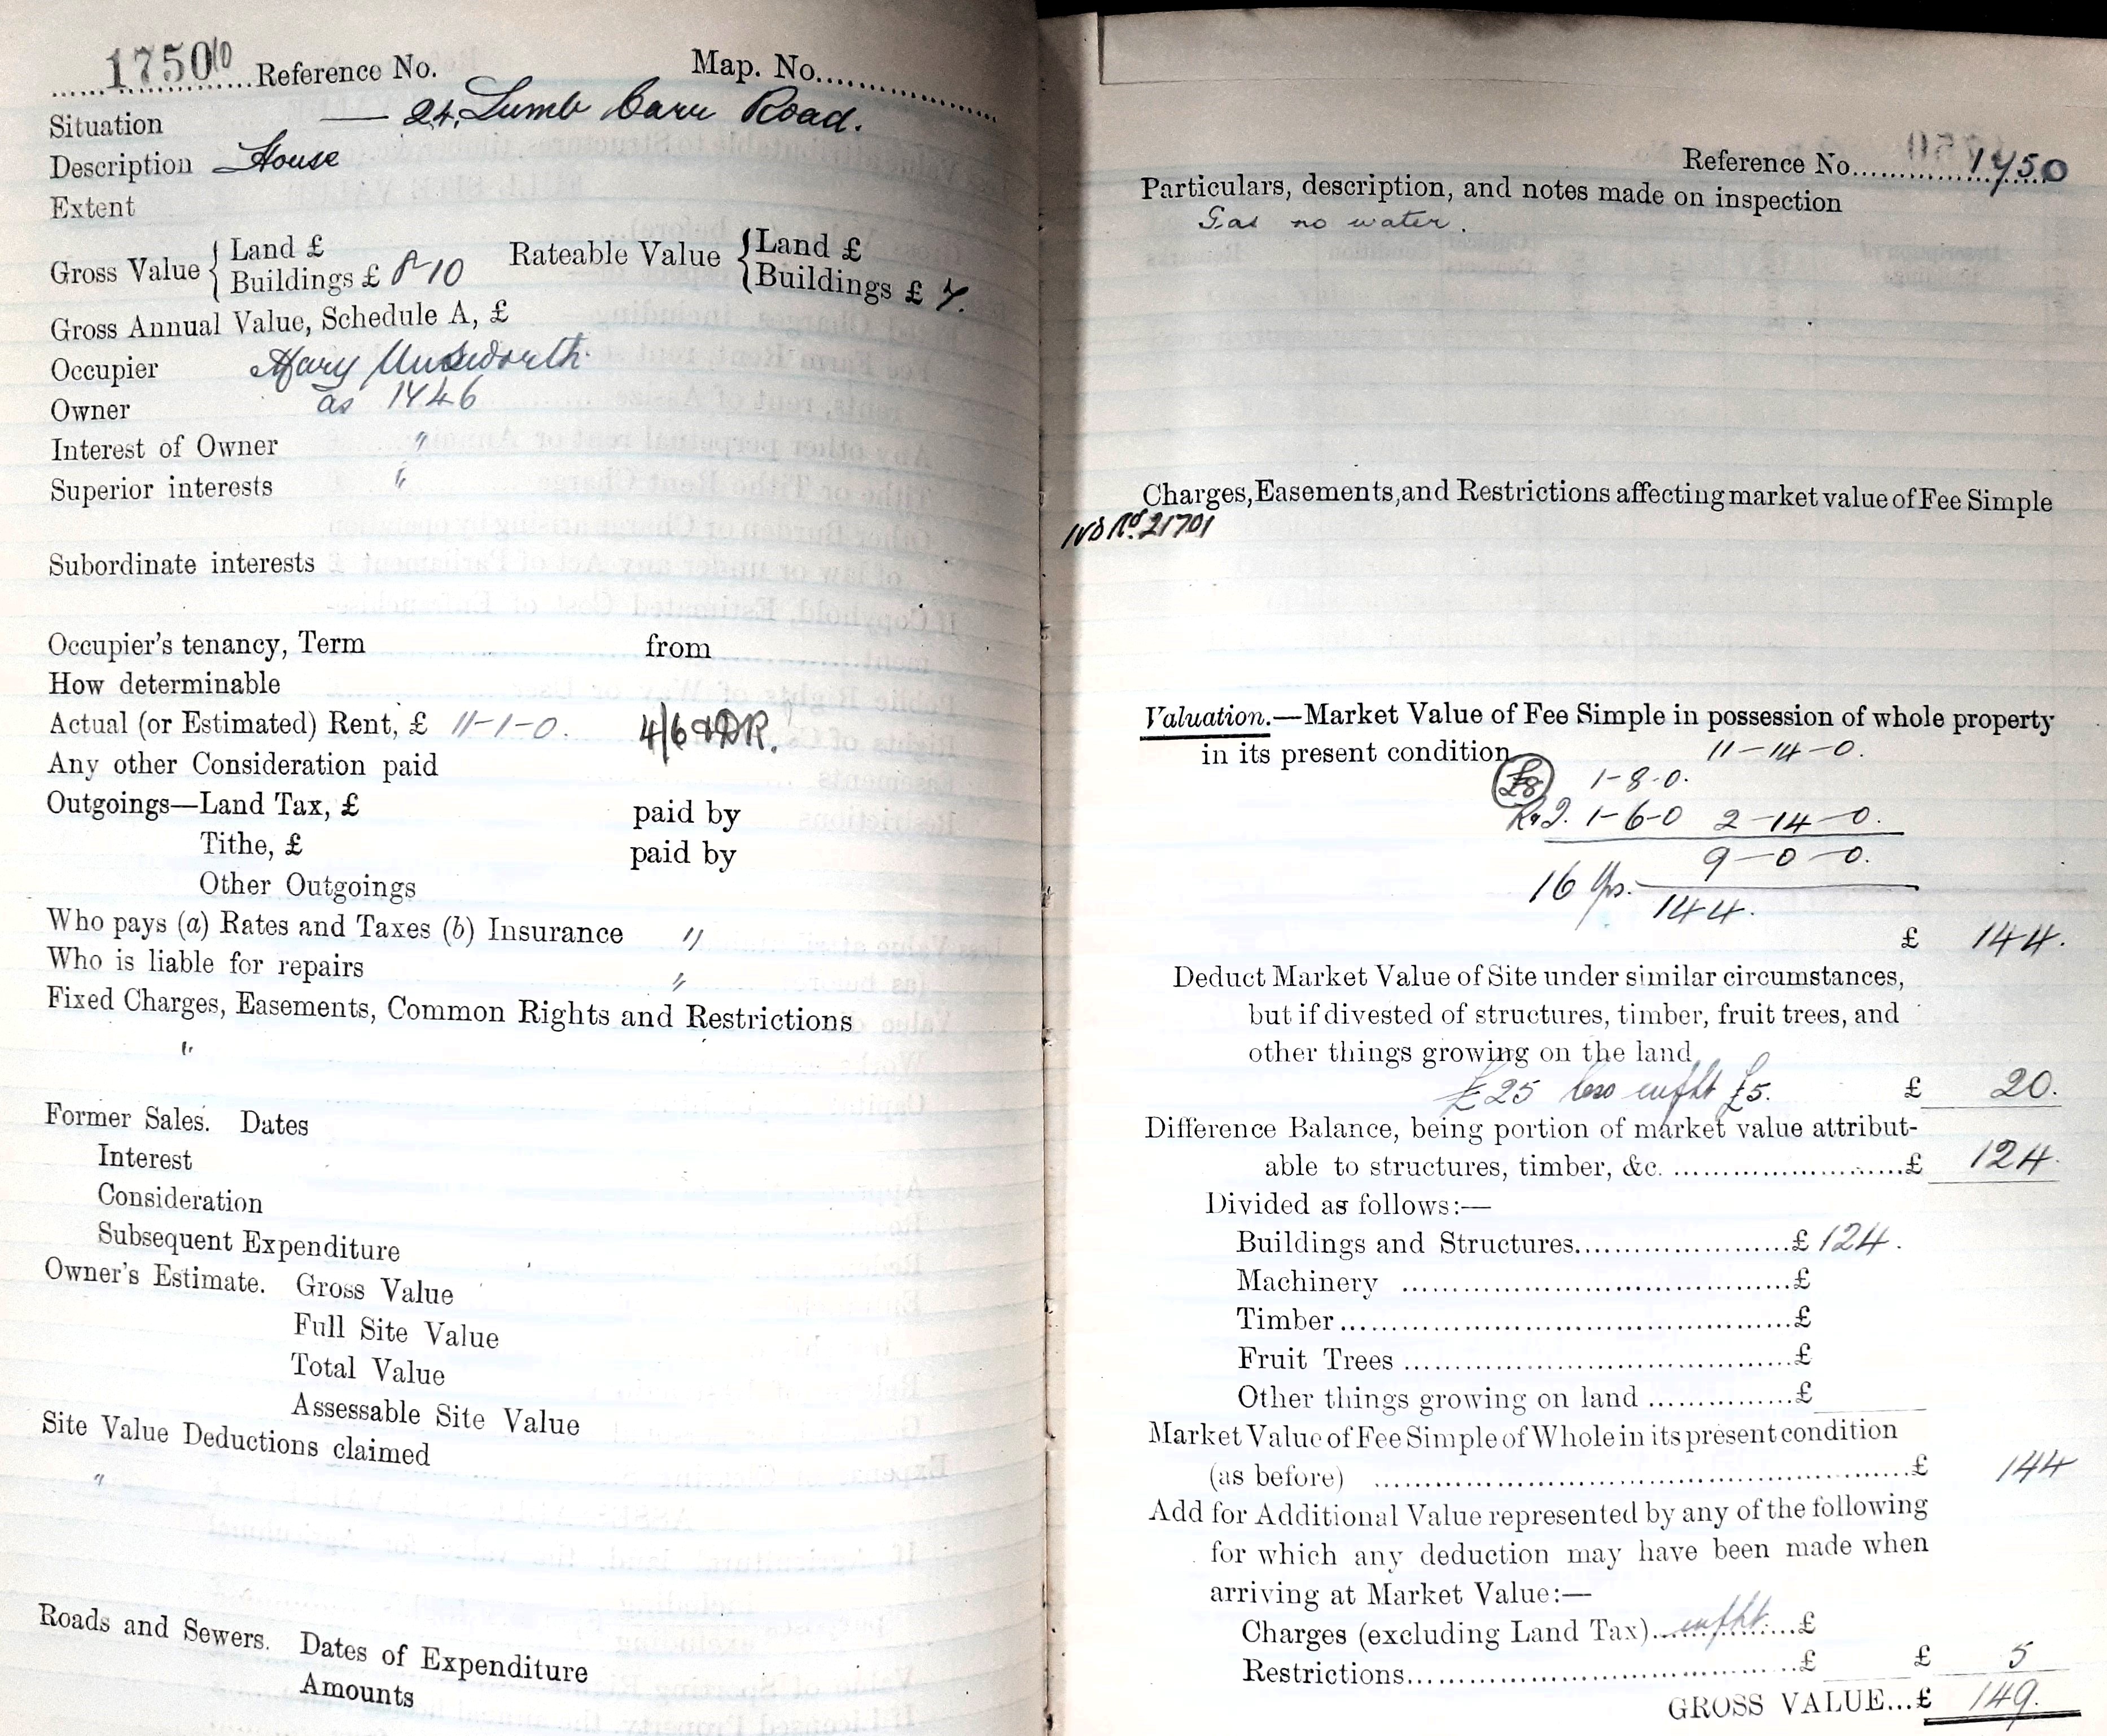 1750 Reference No. Map. No.
Situation — 24, Lumb Carr Road.
Description House
Extent
Gross Value { Land £ Rateable Value { Land £
Buildings £ 8-10 Buildings £ 7.
Gross Annual Value, Schedule A, £
Occupier Mary Unsworth
Owner as 1746
Interest of Owner "
Superior interests "
Subordinate interests
Occupier's tenancy, Term from
How determinable
Actual (or Estimated) Rent, £ 11-1-0. 4/6 & DR.
Any other Consideration paid
Outgoings—Land Tax, £ paid by
Tithe, £ paid by
Other Outgoings
Who pays (a) Rates and Taxes (b) Insurance "
Who is liable for repairs "
Fixed Charges, Easements, Common Rights and Restrictions
"
Former Sales. Dates
Interest
Consideration
Subsequent Expenditure
Owner's Estimate. Gross Value
Full Site Value
Total Value
Assessable Site Value
Site Value Deductions claimed
"
Roads and Sewers. Dates of Expenditure
Amounts
Reference No. 1750
Particulars, description, and notes made on inspection
Gas no water.
Charges, Easements, and Restrictions affecting market value of Fee Simple
21701
Valuation.—Market Value of Fee Simple in possession of whole property
in its present condition 11-14-0.
£8 1-8-0.
1-6-0 2-14-0.
9-0-0.
16 yrs.
144.
£ 144.
Deduct Market Value of Site under similar circumstances,
but if divested of structures, timber, fruit trees, and
other things growing on the land
£25 less enfht £5. £ 20.
Difference Balance, being portion of market value attribut-
able to structures, timber, &c. £ 124.
Divided as follows:—
Buildings and Structures £ 124.
Machinery £
Timber £
Fruit Trees £
Other things growing on land £
Market Value of Fee Simple of Whole in its present condition
(as before) £ 144
Add for Additional Value represented by any of the following
for which any deduction may have been made when
arriving at Market Value:—
Charges (excluding Land Tax) enfht. £
Restrictions £ £ 5
GROSS VALUE...£ 149.